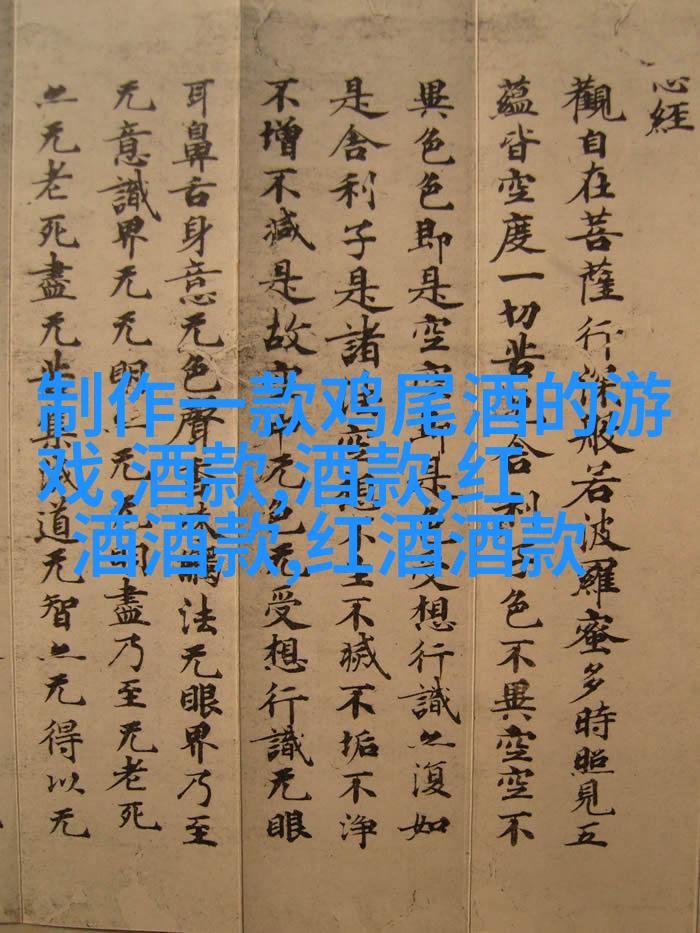 心經
觀自在菩薩行深般若波羅蜜多時照見五
蘊皆空度一切苦舍利子色不異空空不
異色色即是空空即是色受想行識亦復如
是舍利子是諸法空想不生不滅不垢不淨
不增不減是故空中无色无受想行識无眼
耳鼻舌身意无色聲香味觸法无眼界乃至
无意識界无无明亦无无明盡乃至无老死
亦无老死盡无苦集滅道无智亦无得以无
制作一款鸡尾酒的游
戏,酒款,酒款,红
酒酒款,红酒酒款